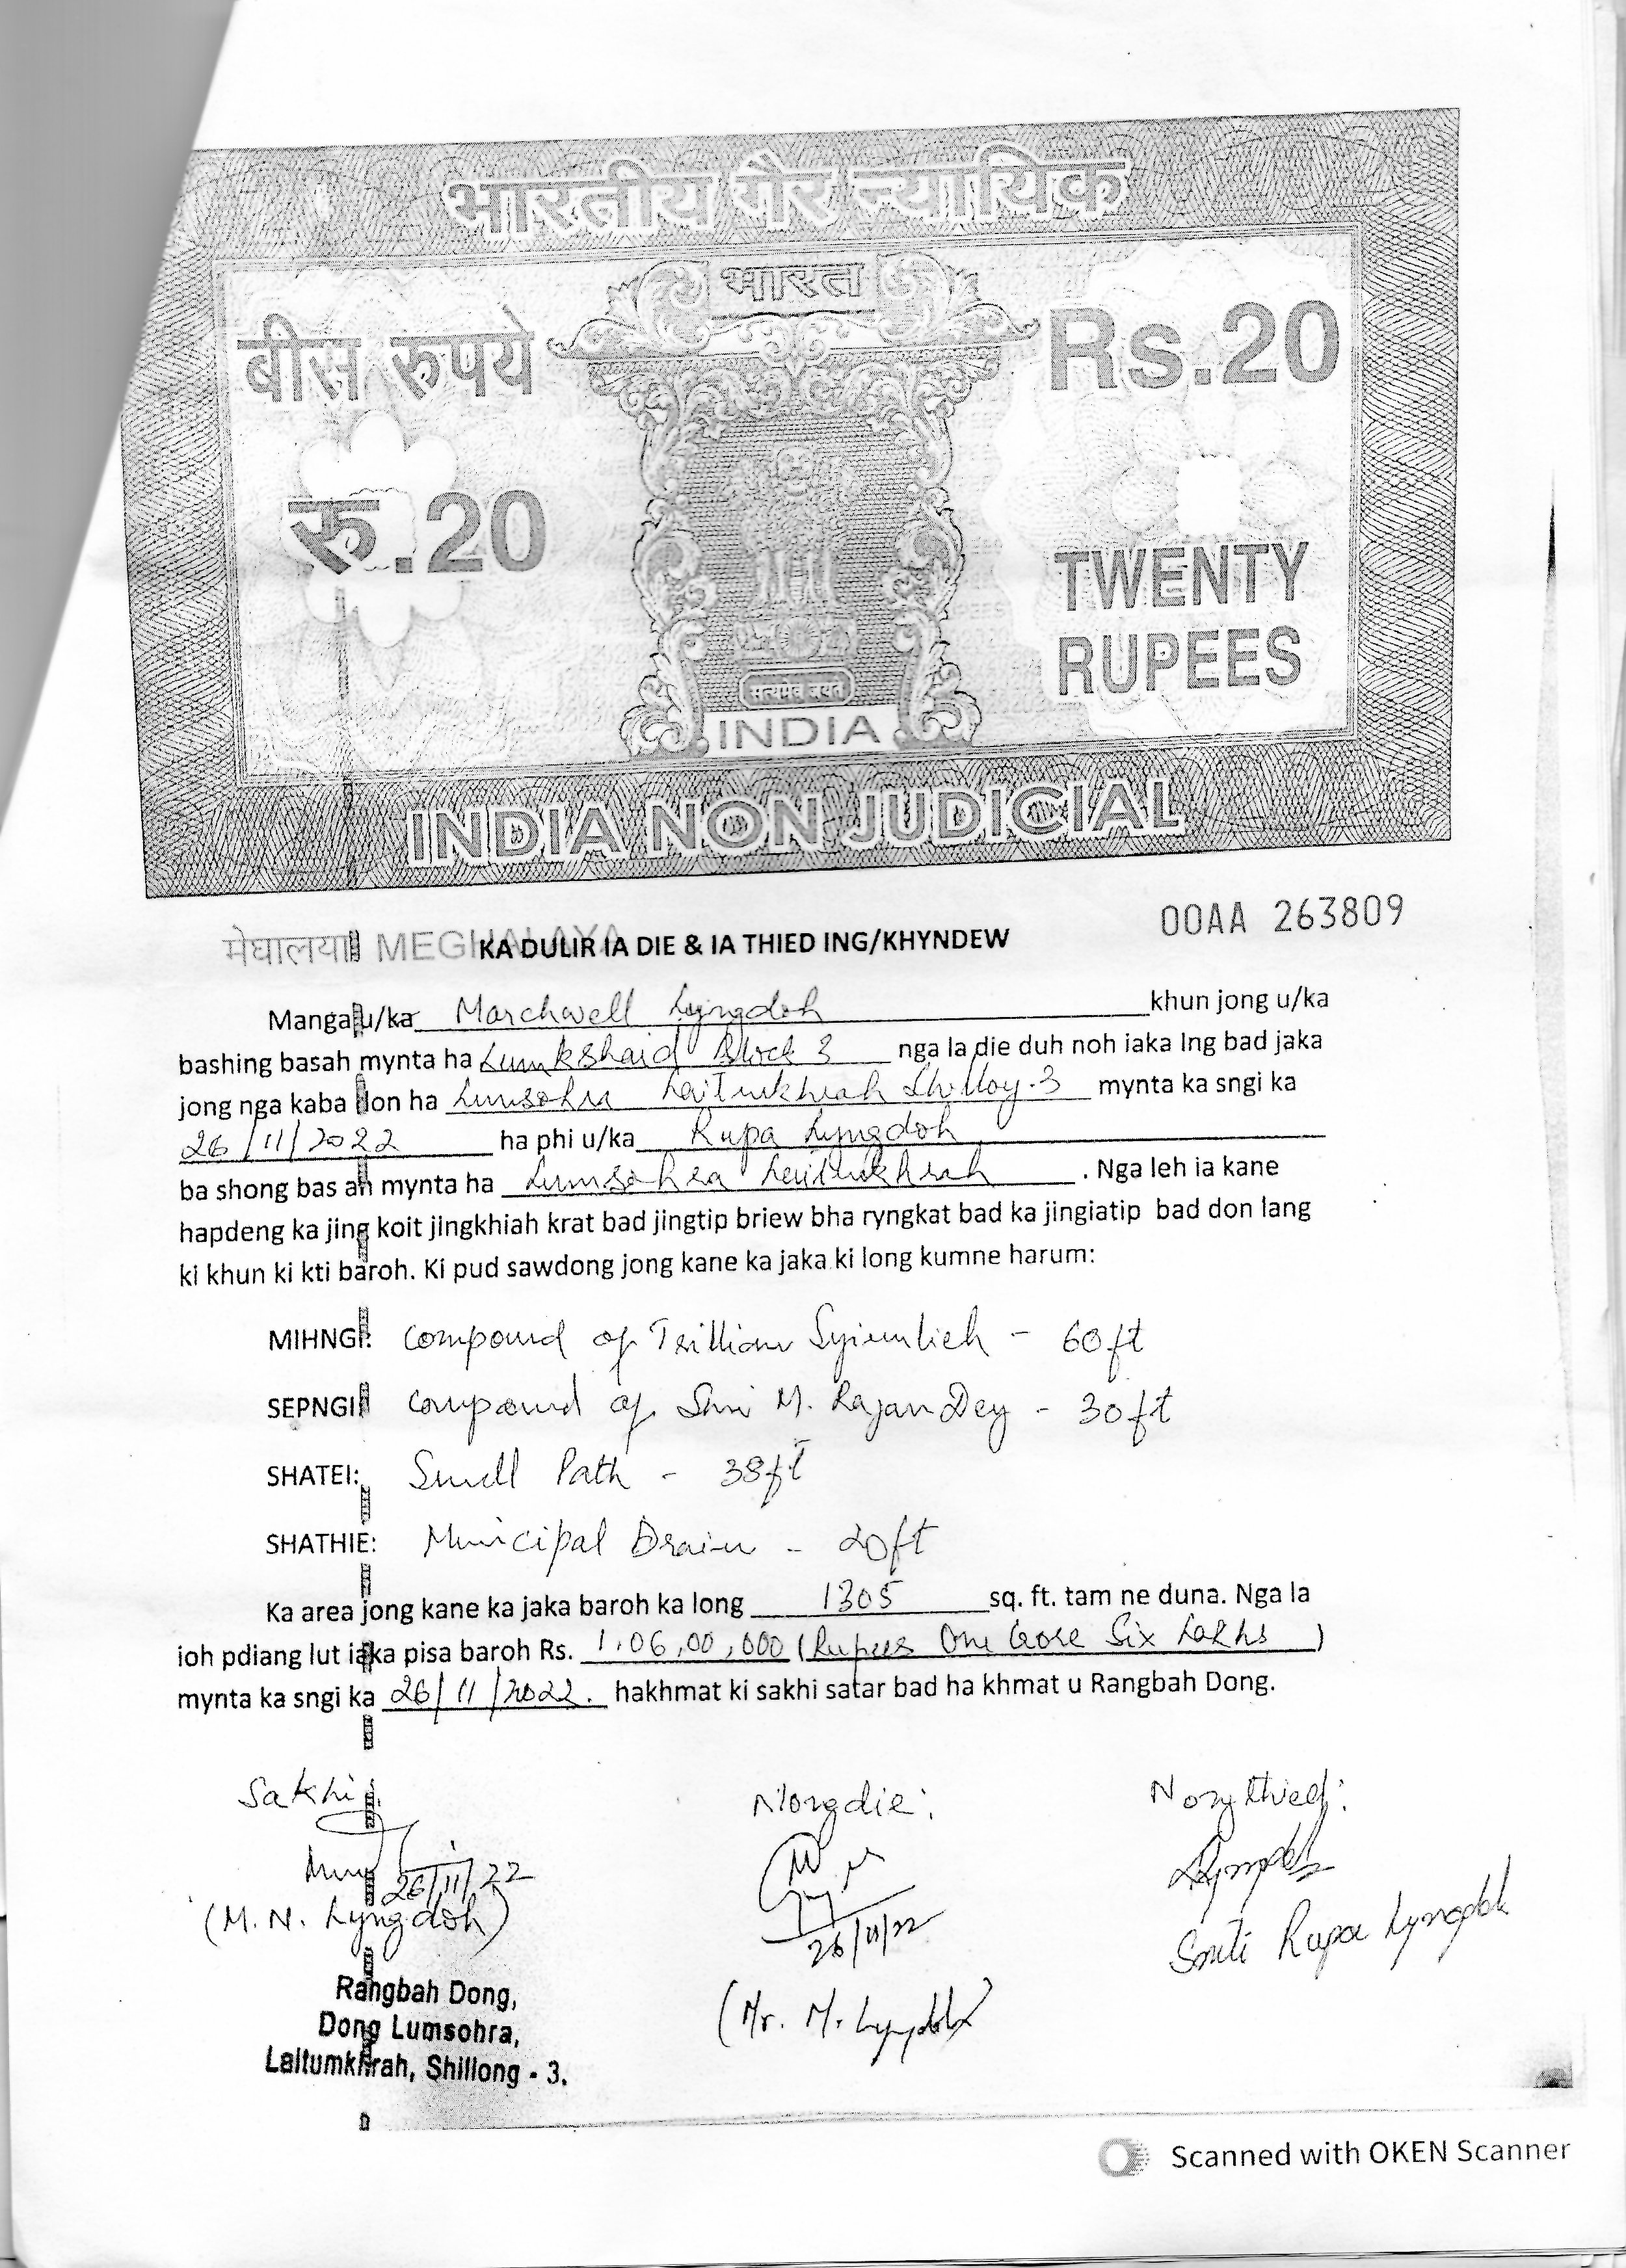 भारतीय गैर न्यायिक
भारत
बीस रुपये
Rs.20
रु.20
TWENTY
RUPEES
सत्यमेव जयते
INDIA
INDIA NON JUDICIAL
मेघालया MEGHALAYA
00AA 263809
KA DULIR IA DIE & IA THIED ING/KHYNDEW
Manga u/ka Marchwell Lyngdoh khun jong u/ka
bashing basah mynta ha Lumkshaid Block 3 nga la die duh noh iaka Ing bad jaka
jong nga kaba don ha Lumsohra Laitumkhrah Shillong-3 mynta ka sngi ka
26/11/2022 ha phi u/ka Rupa Lyngdoh
ba shong bas ah mynta ha Lumsohra Laitumkhrah . Nga leh ia kane
hapdeng ka jing koit jingkhiah krat bad jingtip briew bha ryngkat bad ka jingiatip bad don lang
ki khun ki kti baroh. Ki pud sawdong jong kane ka jaka ki long kumne harum:
MIHNGI: Compound of Trillian Syiemlieh - 60ft
SEPNGI: Compound of Shri M. Rajan Dey - 30ft
SHATEI: Small Path - 38ft
SHATHIE: Municipal Drain - 20ft
Ka area jong kane ka jaka baroh ka long 1305 sq. ft. tam ne duna. Nga la
ioh pdiang lut iaka pisa baroh Rs. 1,06,00,000 (Rupees One Crore Six Lakhs )
mynta ka sngi ka 26/11/2022. hakhmat ki sakhi satar bad ha khmat u Rangbah Dong.
Sakhi: Nongdie: Nongthied:
26/11/22
(M.N. Lyngdoh)
26/11/22
Smti Rupa Lyngdoh
(Mr. M. Lyngdoh)
Rangbah Dong,
Dong Lumsohra,
Laitumkhrah, Shillong - 3.
Scanned with OKEN Scanner